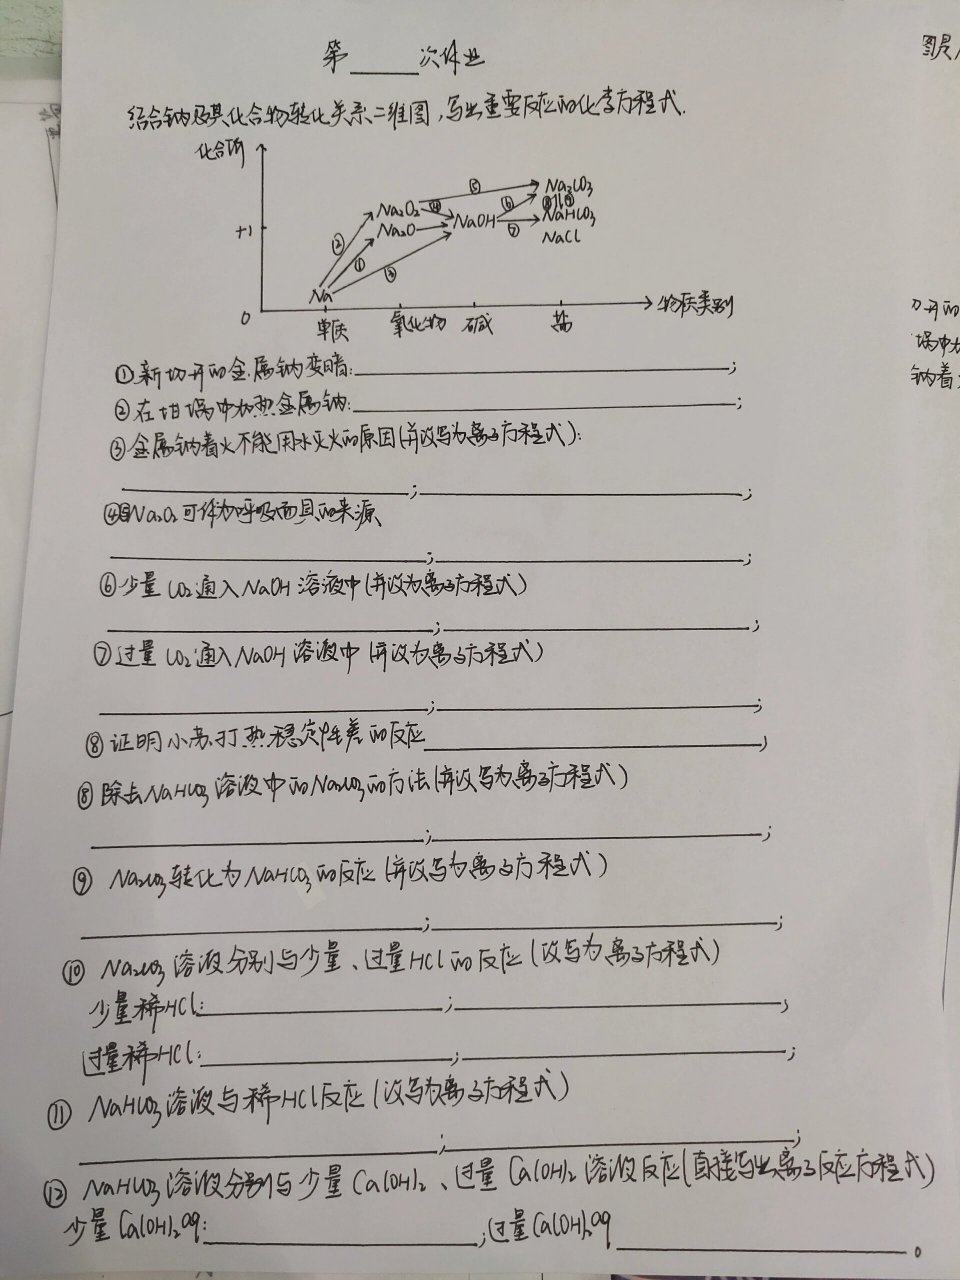 第____次作业
图是
结合钠及其化合物转化关系二维图,写出重要反应的化学方程式.
化合价
⑤ Na₂CO₃
Na₂O₂ ④ ⑥ ⑧⑨
+1 ② Na₂O NaOH ⑦ NaHCO₃
① ③ NaCl
Na
0 单质 氧化物 碱 盐 物质类别
刀开的
埚中加
钠着
①新切开的金属钠变暗:____;
②在坩埚中加热金属钠:____;
③金属钠着火不能用水灭火的原因(并改写为离子方程式):
____;____;
④⑤Na₂O₂可作为呼吸面具的来源
____;____;
⑥少量CO₂通入NaOH溶液中(并改为离子方程式)
____;____;
⑦过量CO₂通入NaOH溶液中(并改为离子方程式)
____;____;
⑧证明小苏打热稳定性差的反应____;
⑧除去NaHCO₃溶液中的Na₂CO₃的方法(并改写为离子方程式)
____;____;
⑨Na₂CO₃转化为NaHCO₃的反应(并改写为离子方程式)
____;____;
⑩Na₂CO₃溶液分别与少量、过量HCl的反应(改写为离子方程式)
少量稀HCl:____;____;
过量稀HCl:____;____;
⑪NaHCO₃溶液与稀HCl反应(改写为离子方程式)
____;____;
⑫NaHCO₃溶液分别与少量Ca(OH)₂、过量Ca(OH)₂溶液反应(直接写出离子反应方程式)
少量Ca(OH)₂aq:____;过量Ca(OH)₂aq____。